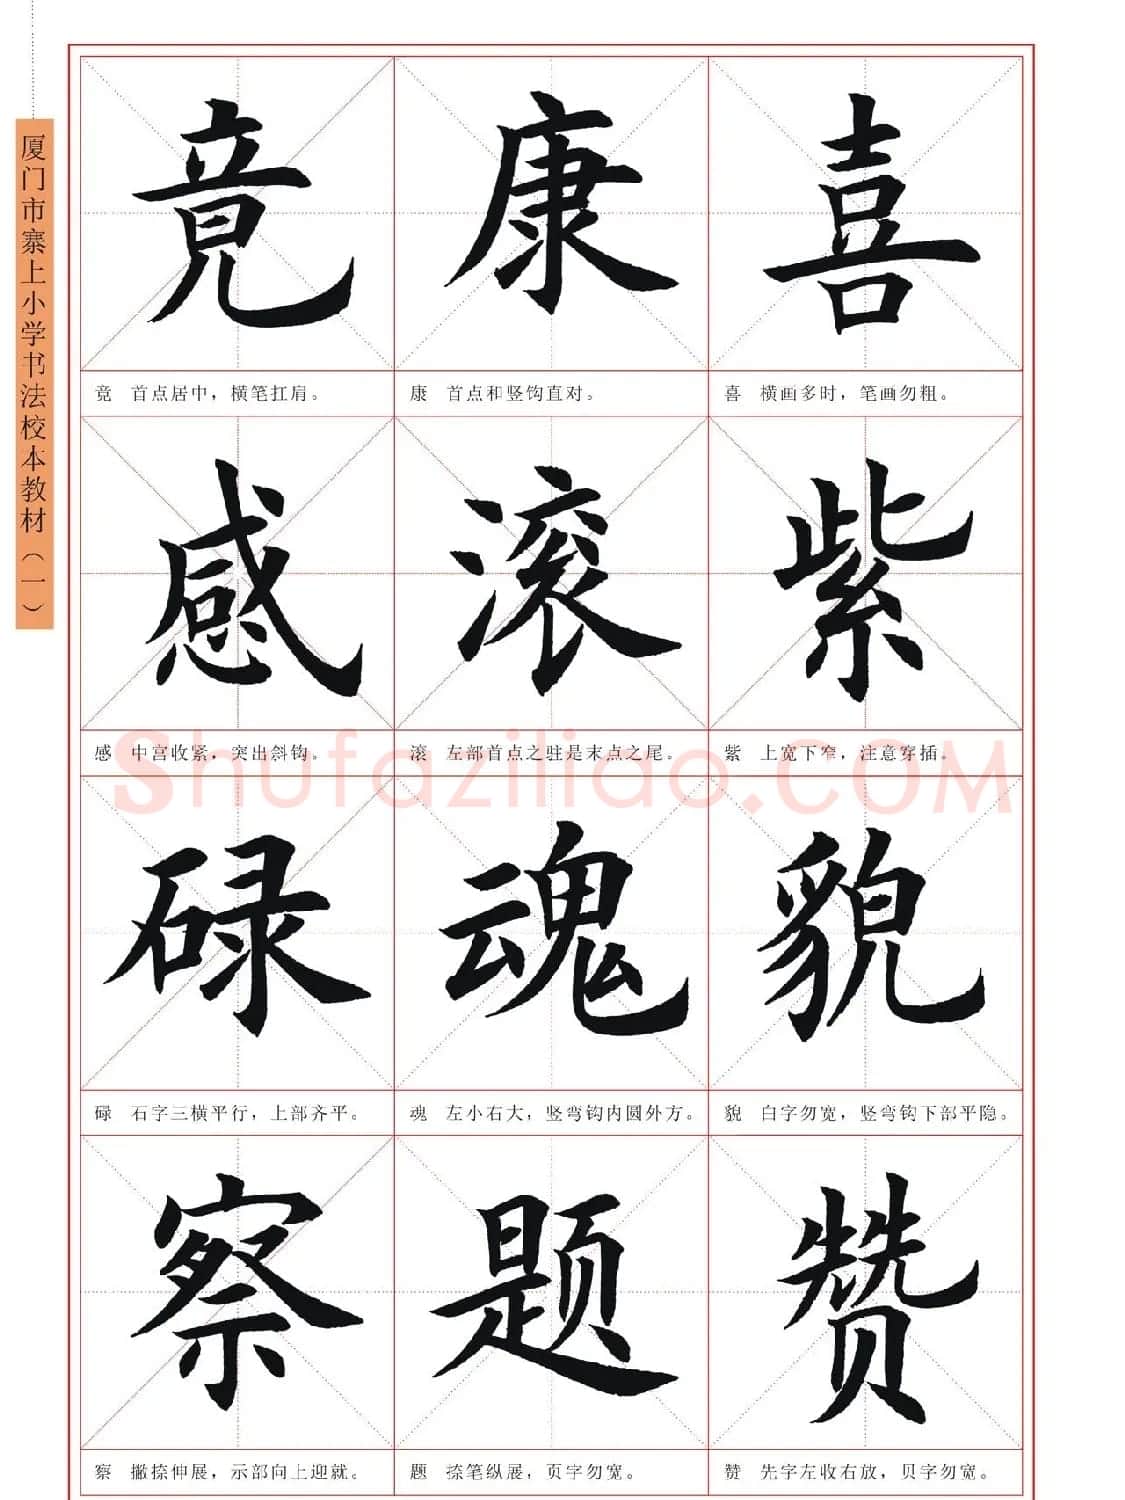 厦门市寨上小学书法校本教材（一）
竟 康 喜
竟 首点居中，横笔扛肩。
康 首点和竖钩直对。
喜 横画多时，笔画勿粗。
感 滚 紫
感 中宫收紧，突出斜钩。
滚 左部首点之驻是末点之尾。
紫 上宽下窄，注意穿插。
Shufaziliao.COM
碌 魂 貌
碌 石字三横平行，上部齐平。
魂 左小右大，竖弯钩内圆外方。
貌 白字勿宽，竖弯钩下部平隐。
察 题 赞
察 撇捺伸展，示部向上迎就。
题 捺笔纵展，页字勿宽。
赞 先字左收右放，贝字勿宽。